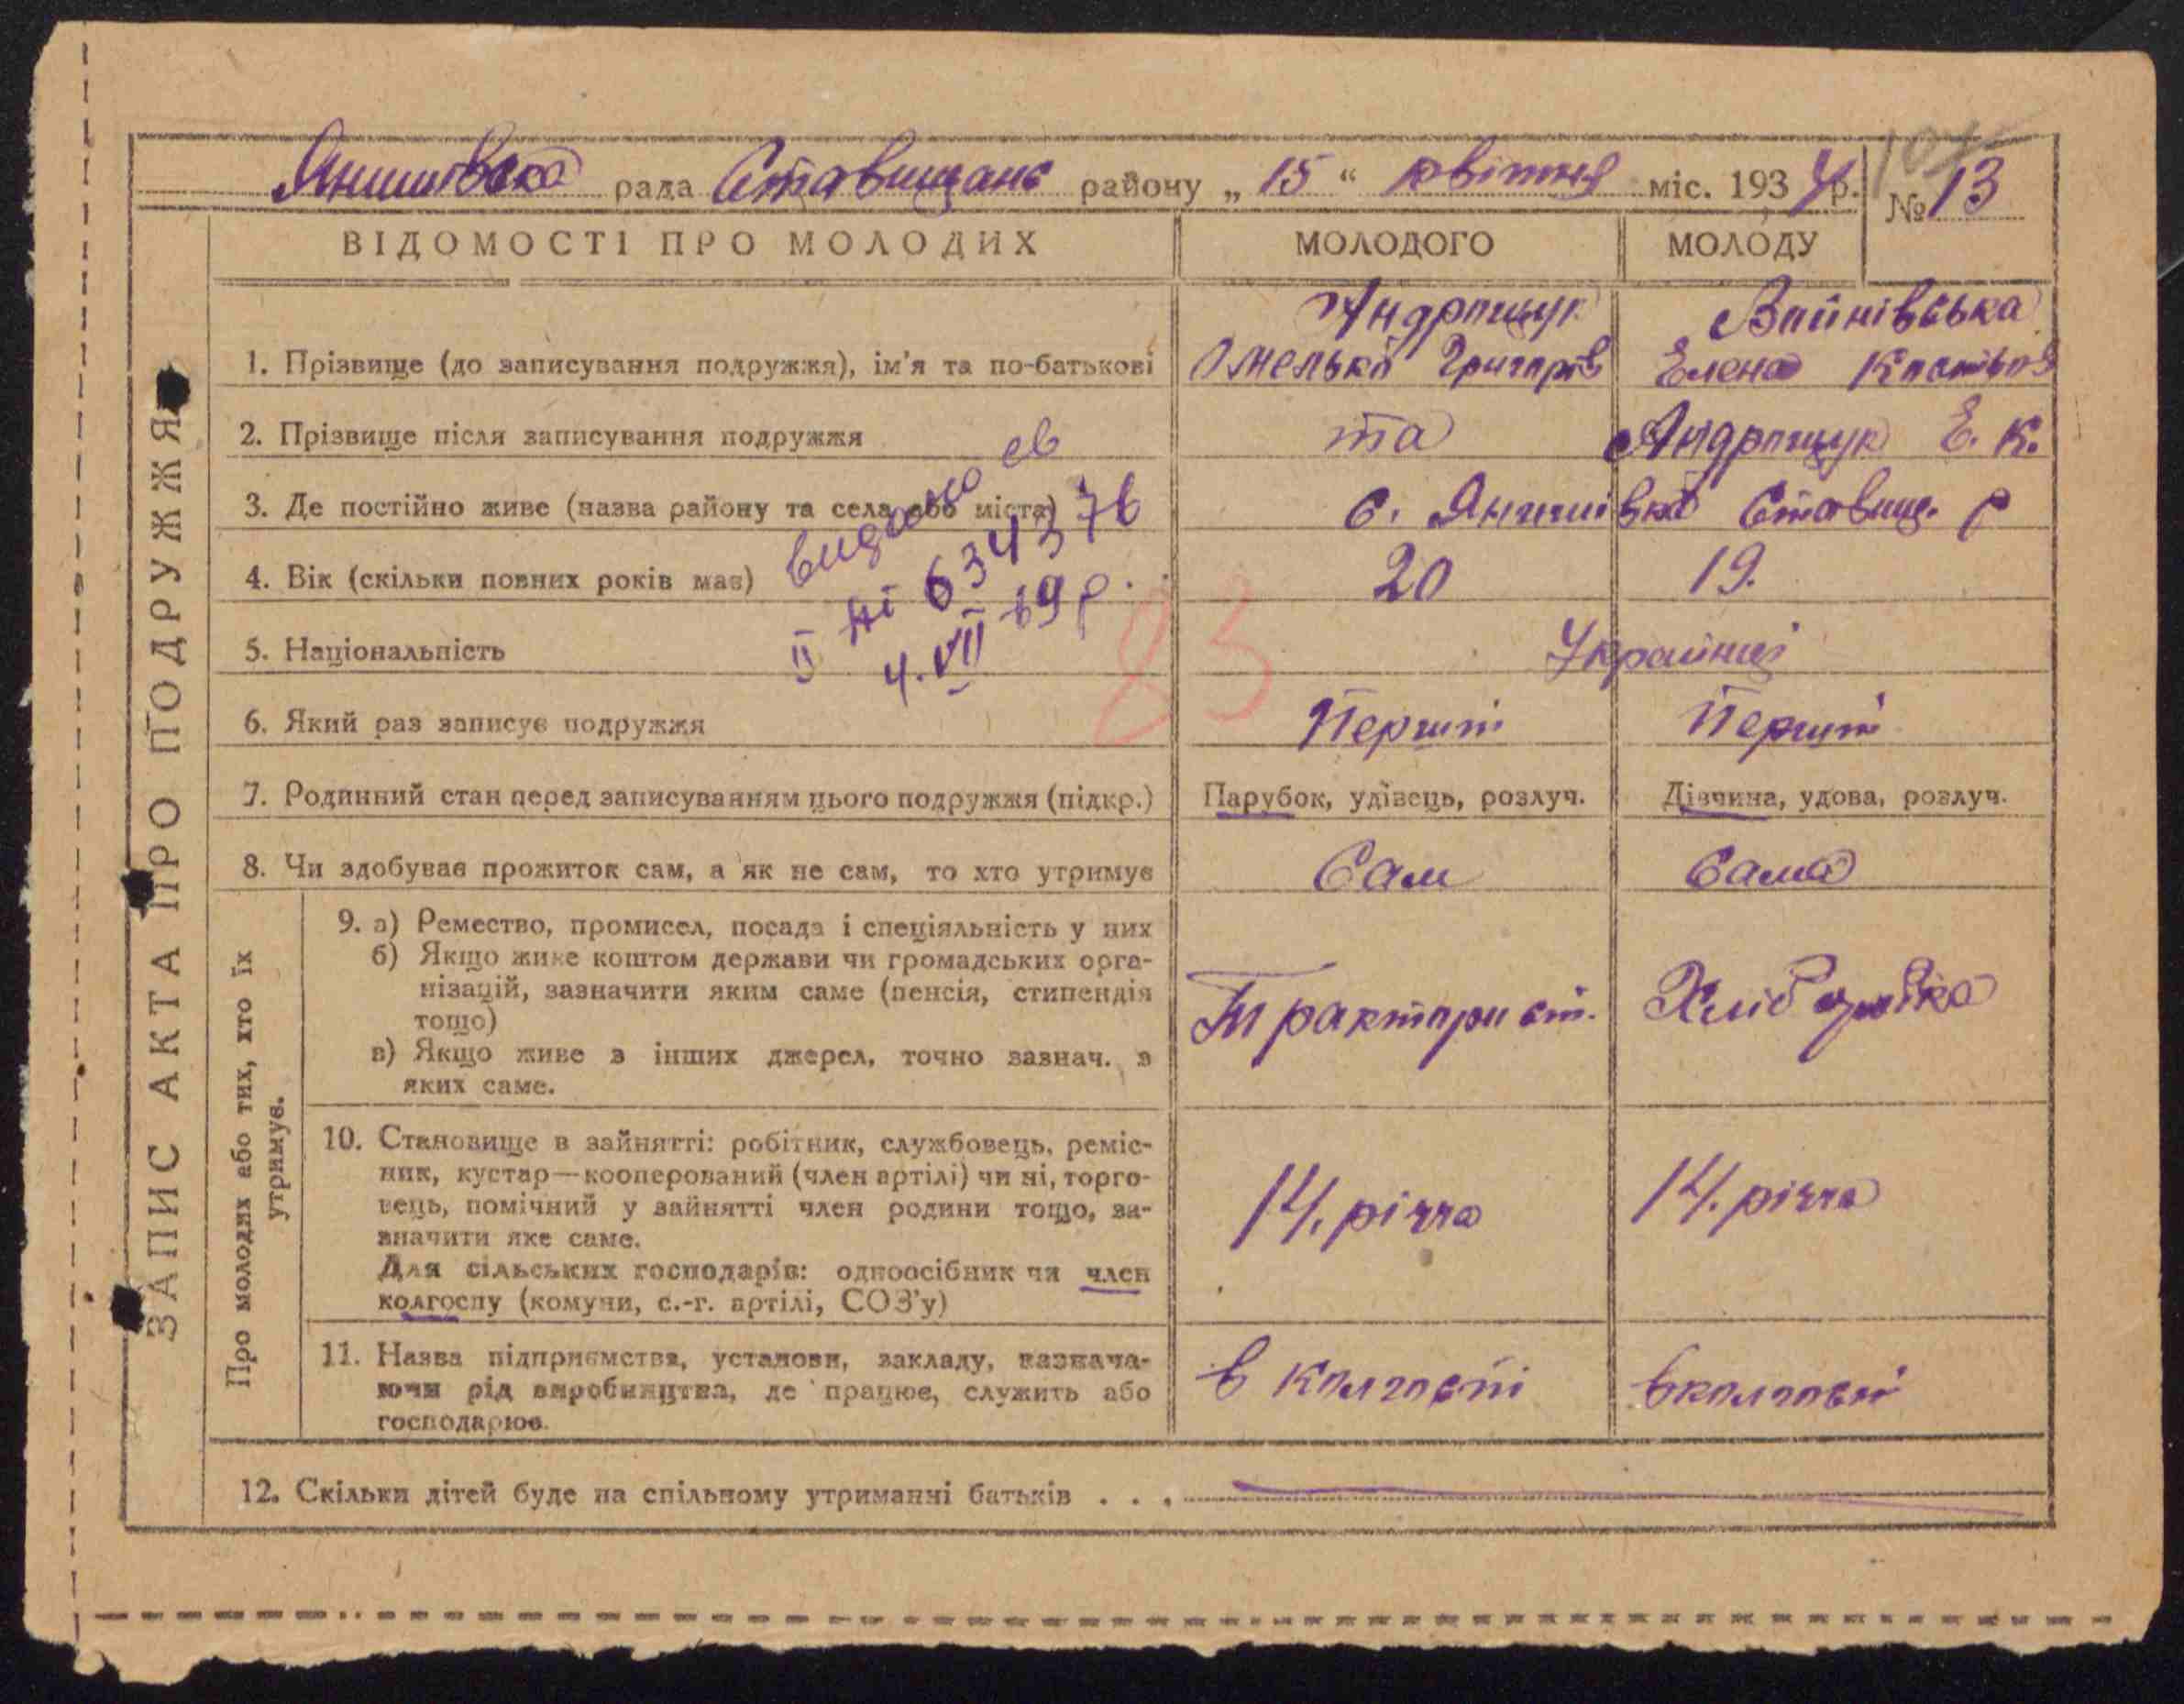 Янишівска рада Ставищанс району „ 15 “ квітня міс. 1934 р. № 13
ЗАПИС АКТА ПРО ПОДРУЖЖЯ
ВІДОМОСТІ ПРО МОЛОДИХ МОЛОДОГО МОЛОДУ
Андрощук Войнівська
1. Прізвище (до записування подружжя), ім'я та по-батькові Омелько Григоров Елена Костьов
2. Прізвище після записування подружжя та Андрощук Е. К.
3. Де постійно живе (назва району та села або міста) с. Янишівка Ставищ. р
4. Вік (скільки повних років має) 20 19.
видано св
II НІ 634376
4. VII 69 р.
5. Національність Українці
83
6. Який раз записує подружжя Перший Перший
7. Родинний стан перед записуванням цього подружжя (підкр.) Парубок, удівець, розлуч. Дівчина, удова, розлуч.
8. Чи здобуває прожиток сам, а як не сам, то хто утримує Сам Сама
Про молодих або тих, хто їх
утримує.
9. а) Ремество, промисел, посада і спеціяльність у них
б) Якщо живе коштом держави чи громадських орга-
нізацій, зазначити яким саме (пенсія, стипендія
тощо)
в) Якщо живе з інших джерел, точно зазнач. з
яких саме.
Тракторист. Хліборобка
10. Становище в зайнятті: робітник, службовець, реміс-
ник, кустар—кооперований (член артілі) чи ні, торго-
вець, помічний у зайнятті член родини тощо, за-
значити яке саме.
Для сільських господарів: одноосібник чи член
колгоспу (комуни, с.-г. артілі, СОЗ'у)
11. Назва підприємства, установи, закладу, назнача-
ючи рід виробництва, де працює, служить або
господарює.
в колгоспі в колгоспі
12. Скільки дітей буде на спільному утриманні батьків . . .